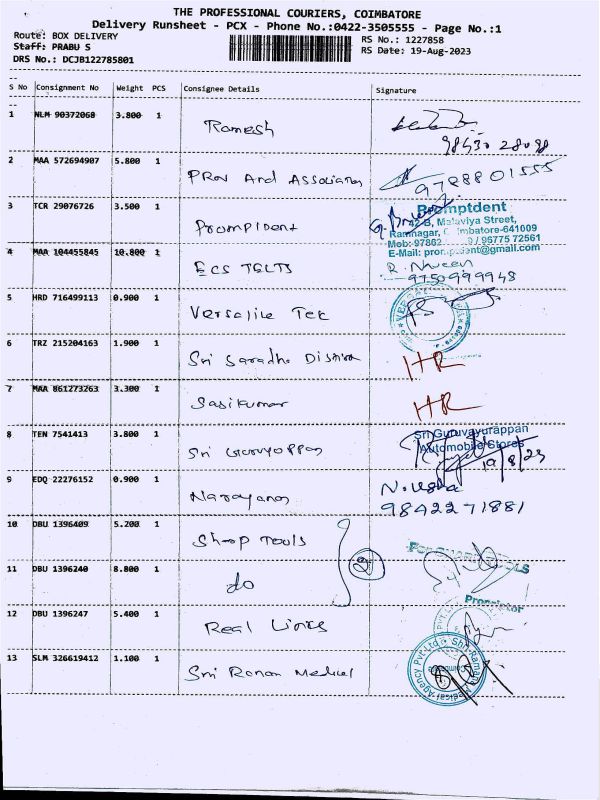 THE PROFESSIONAL COURIERS, COIMBATORE
Delivery Runsheet - PCX - Phone No.:0422-3505555 - Page No.:1
Route: BOX DELIVERY
RS No.: 1227858
Staff: PRABU S
RS Date: 19-Aug-2023
DRS No.: DCJB122785801
S No Consignment No Weight PCS Consignee Details Signature
1 NLM 90372060 3.800 1 Ramesh
98430 28098
2 MAA 572694907 5.800 1 PROV And Associates
9788801555
3 TCR 29076726 3.500 1 PromptDent
Promptdent
42-B, Malaviya Street,
Ramnagar, Coimbatore-641009
Mob: 97862 9 / 96775 72561
E-Mail: promptdent@gmail.com
4 MAA 104455845 10.800 1 ECS TELTS
R. Naveen
9750999948
5 HRD 716499113 0.900 1 Versatile Tek
6 TRZ 215204163 1.900 1 Sri Saradha
HR
7 MAA 861273263 3.300 1 Sasikumar
HR
8 TEN 7541413 3.800 1 Sri
Sri Guruvayurappan
Automobile Stores
19/8/23
9 EDQ 22276152 0.900 1 Narayanan
N. Usha
9842271881
10 DBU 1396409 5.200 1 Sharp Tools
11 DBU 1396240 8.800 1 do
2
Proprietor
12 DBU 1396247 5.400 1 Real Links
13 SLM 326619412 1.100 1 Sri Raman Medical
Shri Ramana Medical Agency Pvt. Ltd.